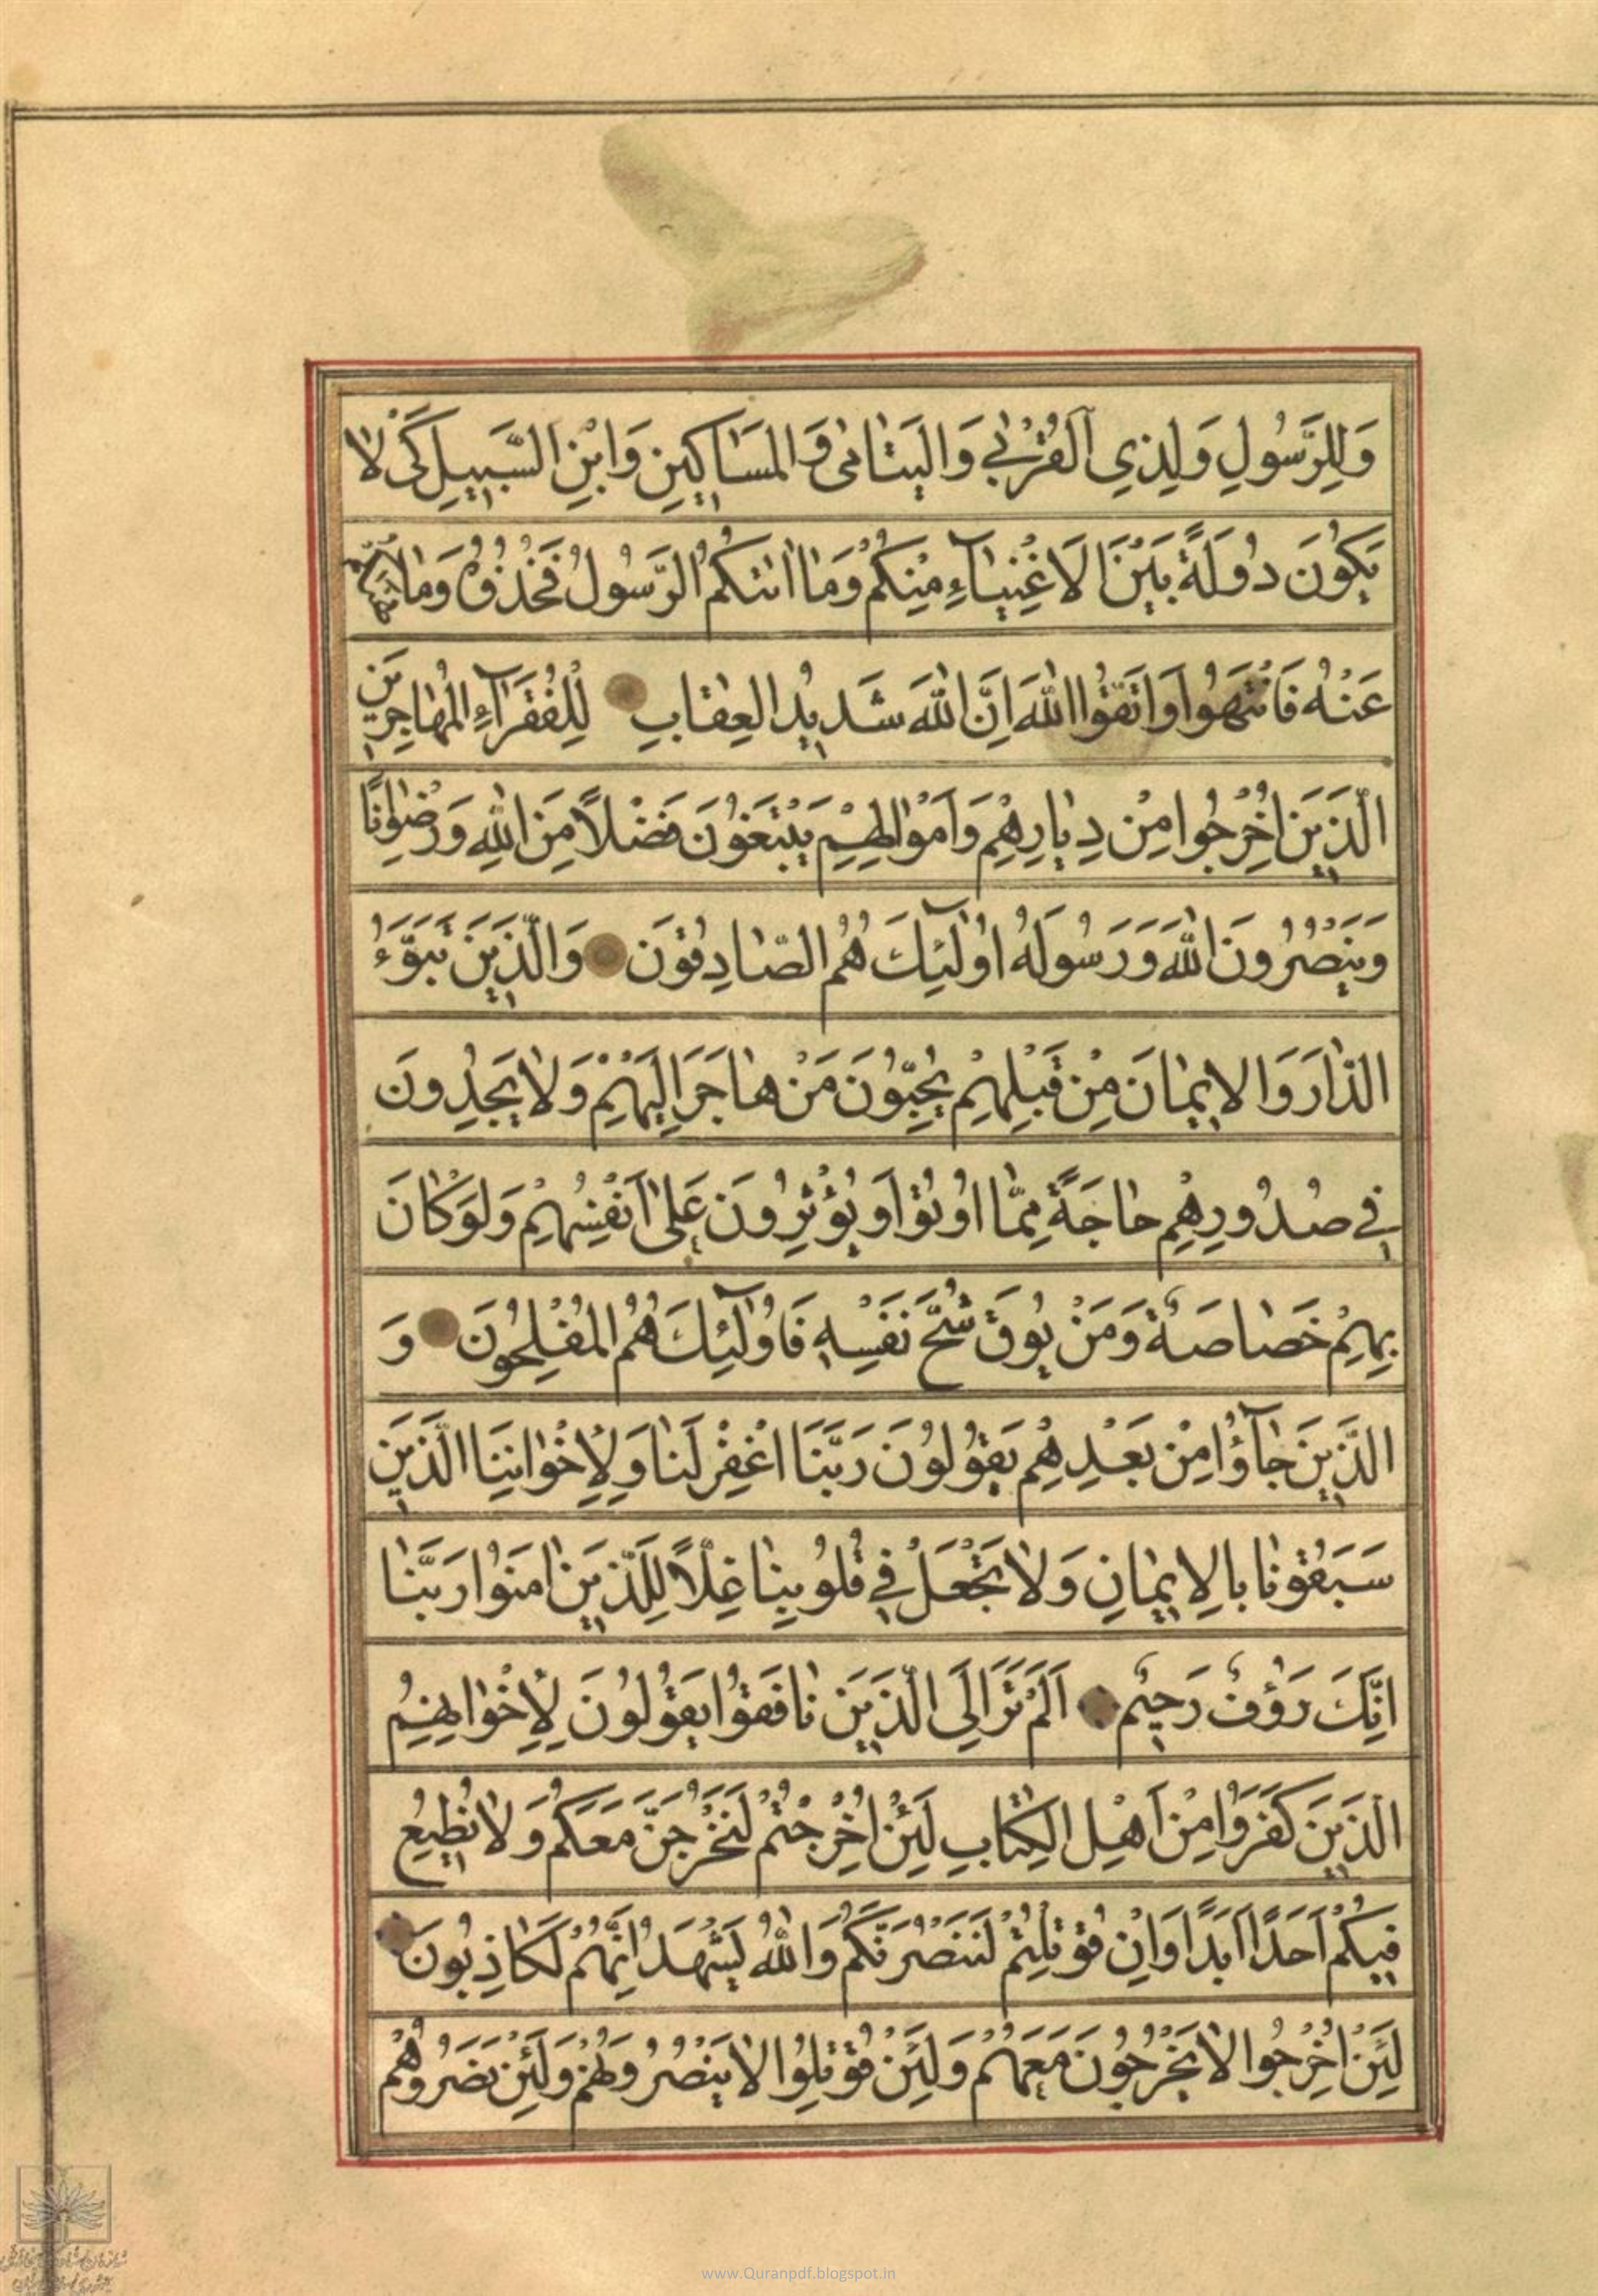 وَلِلرَّسُولِ وَلِذِي الْقُرْبٰي وَالْيَتٰامٰى وَالْمَسٰاكِينِ وَابْنِ السَّبِيلِ كَىْ لٰا
يَكُونَ دُولَةً بَيْنَ الْاَغْنِيٰآءِ مِنْكُمْ وَمٰا اٰتٰكُمُ الرَّسُولُ فَخُذُوهُ وَمٰا نَهٰيكُمْ
عَنْهُ فَانْتَهُوا وَاتَّقُوا اللّٰهَ اِنَّ اللّٰهَ شَدِيدُ الْعِقٰابِ لِلْفُقَرٰآءِ الْمُهٰاجِرِينَ
الَّذِينَ اُخْرِجُوا مِنْ دِيٰارِهِمْ وَاَمْوٰالِهِمْ يَبْتَغُونَ فَضْلًا مِنَ اللّٰهِ وَرِضْوٰانًا
وَيَنْصُرُونَ اللّٰهَ وَرَسُولَهُ اُولٰٓئِكَ هُمُ الصّٰادِقُونَ وَالَّذِينَ تَبَوَّءُ
الدّٰارَ وَالْاِيمٰانَ مِنْ قَبْلِهِمْ يُحِبُّونَ مَنْ هٰاجَرَ اِلَيْهِمْ وَلٰا يَجِدُونَ
فِي صُدُورِهِمْ حٰاجَةً مِمّٰا اُوتُوا وَيُؤْثِرُونَ عَلٰى اَنْفُسِهِمْ وَلَوْ كٰانَ
بِهِمْ خَصٰاصَةٌ وَمَنْ يُوقَ شُحَّ نَفْسِهِ فَاُولٰٓئِكَ هُمُ الْمُفْلِحُونَ وَ
الَّذِينَ جٰآؤُا مِنْ بَعْدِهِمْ يَقُولُونَ رَبَّنَا اغْفِرْ لَنٰا وَلِاِخْوٰانِنَا الَّذِينَ
سَبَقُونٰا بِالْاِيمٰانِ وَلٰا تَجْعَلْ فِي قُلُوبِنٰا غِلًّا لِلَّذِينَ اٰمَنُوا رَبَّنٰا
اِنَّكَ رَؤُفٌ رَحِيمٌ اَلَمْ تَرَ اِلَى الَّذِينَ نٰافَقُوا يَقُولُونَ لِاِخْوٰانِهِمُ
الَّذِينَ كَفَرُوا مِنْ اَهْلِ الْكِتٰابِ لَئِنْ اُخْرِجْتُمْ لَنَخْرُجَنَّ مَعَكُمْ وَلٰا نُطِيعُ
فِيكُمْ اَحَدًا اَبَدًا وَاِنْ قُوتِلْتُمْ لَنَنْصُرَنَّكُمْ وَاللّٰهُ يَشْهَدُ اِنَّهُمْ لَكٰاذِبُونَ
لَئِنْ اُخْرِجُوا لٰا يَخْرُجُونَ مَعَهُمْ وَلَئِنْ قُوتِلُوا لٰا يَنْصُرُونَهُمْ وَلَئِنْ نَصَرُوهُمْ
www.Quranpdf.blogspot.in